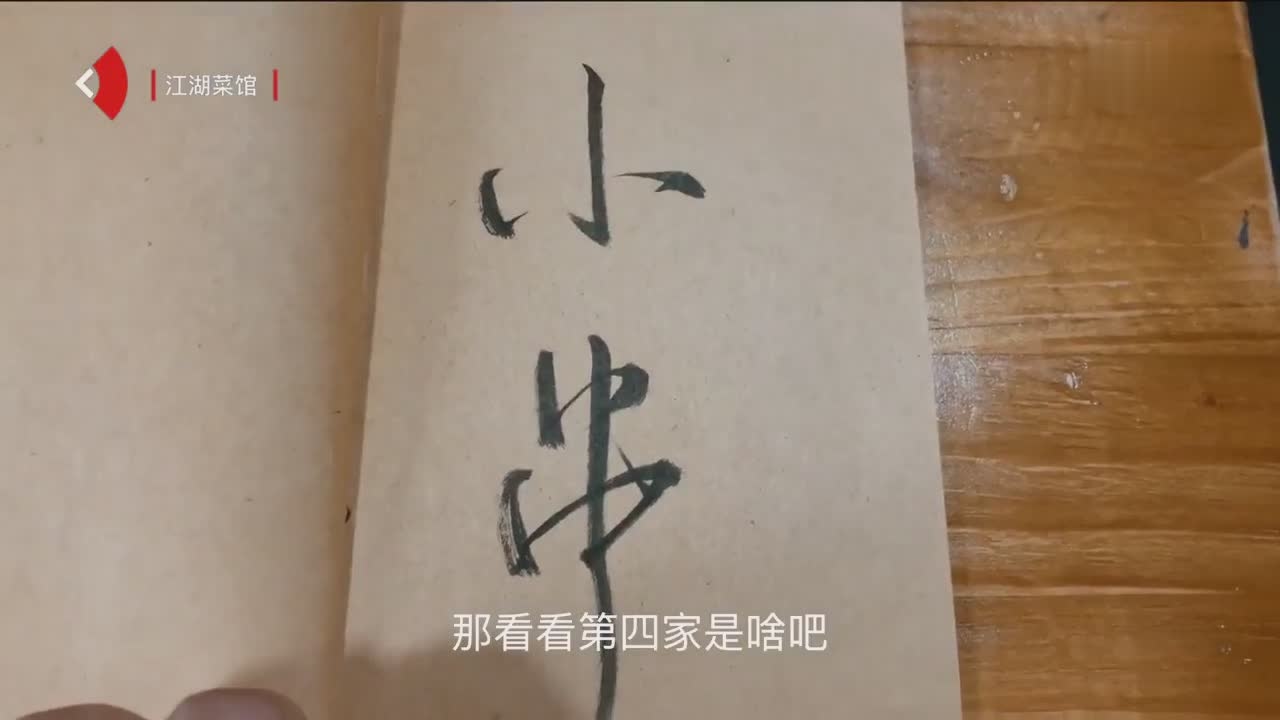 江湖菜馆
小
串
那看看第四家是啥吧